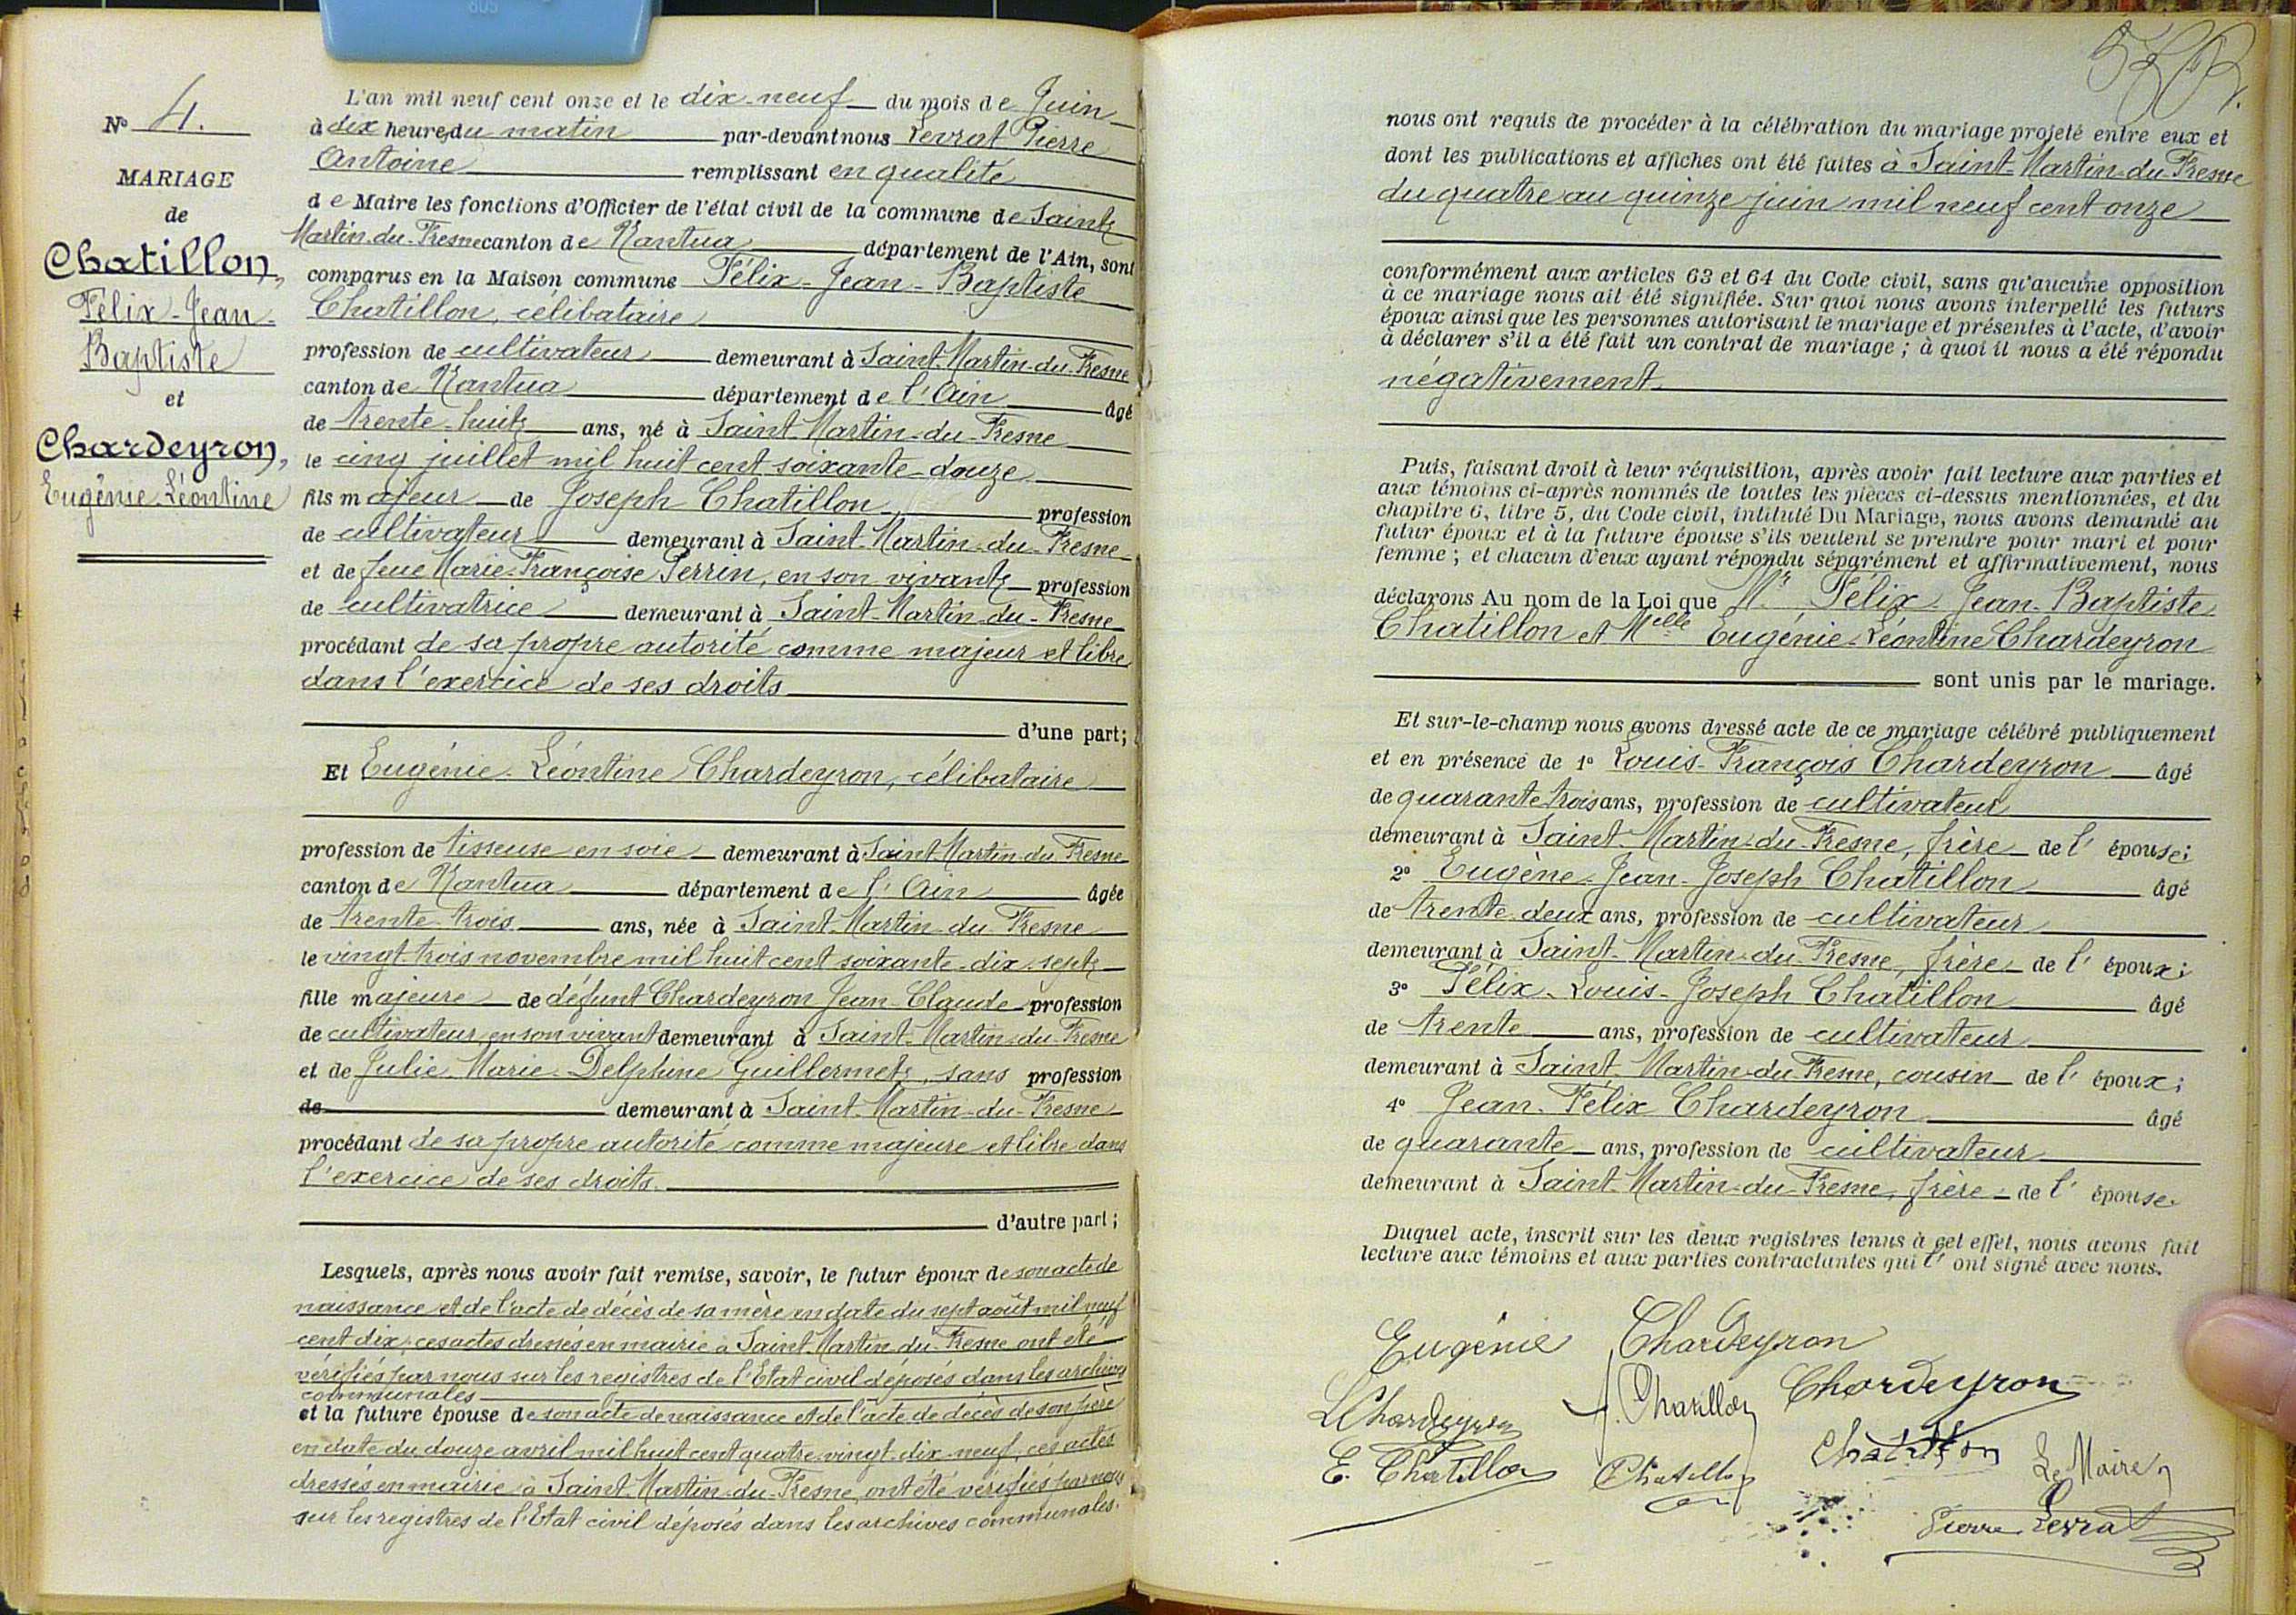 N° 4.
MARIAGE
de
Chatillon,
Félix-Jean-
Baptiste
et
Chardeyron,
Eugénie-Léontine
L'an mil neuf cent onze et le dix-neuf du mois de Juin
à dix heures du matin par-devant nous Levrat Pierre
Antoine remplissant en qualité
de Maire les fonctions d'Officier de l'état civil de la commune de Saint
Martin-du-Fresne canton de Nantua département de l'Ain, sont
comparus en la Maison commune Félix-Jean-Baptiste
Chatillon, célibataire
profession de cultivateur demeurant à Saint-Martin-du-Fresne
canton de Nantua département de l'Ain âgé
de trente-huit ans, né à Saint-Martin-du-Fresne
le cinq juillet mil huit cent soixante-douze
fils majeur de Joseph Chatillon profession
de cultivateur demeurant à Saint-Martin-du-Fresne
et de feue Marie-Françoise Perrin, en son vivant profession
de cultivatrice demeurant à Saint-Martin-du-Fresne
procédant de sa propre autorité comme majeur et libre
dans l'exercice de ses droits
d'une part;
Et Eugénie-Léontine Chardeyron, célibataire
profession de tisseuse en soie demeurant à Saint-Martin-du-Fresne
canton de Nantua département de l'Ain âgée
de trente-trois ans, née à Saint-Martin-du-Fresne
le vingt trois novembre mil huit cent soixante-dix-sept
fille majeure de défunt Chardeyron Jean-Claude profession
de cultivateur en son vivant demeurant à Saint-Martin-du-Fresne
et de Julie-Marie-Delphine Guillermet, sans profession
de demeurant à Saint-Martin-du-Fresne
procédant de sa propre autorité comme majeure et libre dans
l'exercice de ses droits.
d'autre part;
Lesquels, après nous avoir fait remise, savoir, le futur époux de son acte de
naissance et de l'acte de décès de sa mère en date du sept août mil neuf
cent dix; ces actes dressés en mairie à Saint-Martin-du-Fresne ont été
vérifiés par nous sur les registres de l'Etat civil déposés dans les archives
communales
et la future épouse de son acte de naissance et de l'acte de décès de son père
en date du douze avril mil huit cent quatre-vingt-dix-neuf, ces actes
dressés en mairie à Saint-Martin-du-Fresne, ont été vérifiés par nous
sur les registres de l'Etat civil déposés dans les archives communales.
nous ont requis de procéder à la célébration du mariage projeté entre eux et
dont les publications et affiches ont été faites à Saint-Martin-du-Fresne
du quatre au quinze juin mil neuf cent onze
conformément aux articles 63 et 64 du Code civil, sans qu'aucune opposition
à ce mariage nous ait été signifiée. Sur quoi nous avons interpellé les futurs
époux ainsi que les personnes autorisant le mariage et présentes à l'acte, d'avoir
à déclarer s'il a été fait un contrat de mariage; à quoi il nous a été répondu
négativement
Puis, faisant droit à leur réquisition, après avoir fait lecture aux parties et
aux témoins ci-après nommés de toutes les pièces ci-dessus mentionnées, et du
chapitre 6, titre 5, du Code civil, intitulé Du Mariage, nous avons demandé au
futur époux et à la future épouse s'ils veulent se prendre pour mari et pour
femme; et chacun d'eux ayant répondu séparément et affirmativement, nous
déclarons Au nom de la Loi que Mr Félix-Jean-Baptiste
Chatillon et Melle Eugénie-Léontine Chardeyron
sont unis par le mariage.
Et sur-le-champ nous avons dressé acte de ce mariage célébré publiquement
et en présence de 1° Louis-François Chardeyron âgé
de quarante trois ans, profession de cultivateur
demeurant à Saint-Martin-du-Fresne, frère de l'épouse;
2° Eugène-Jean-Joseph Chatillon âgé
de trente-deux ans, profession de cultivateur
demeurant à Saint-Martin-du-Fresne, frère de l'époux;
3° Félix-Louis-Joseph Chatillon âgé
de trente ans, profession de cultivateur
demeurant à Saint-Martin-du-Fresne, cousin de l'époux;
4° Jean-Félix Chardeyron âgé
de quarante ans, profession de cultivateur
demeurant à Saint-Martin-du-Fresne, frère de l'épouse.
Duquel acte, inscrit sur les deux registres tenus à cet effet, nous avons fait
lecture aux témoins et aux parties contractantes qui l'ont signé avec nous.
Eugénie Chardeyron
L Chardeyron f. Chatillon Chardeyron
E. Chatillon Chatillon Chatillon Le Maire,
Pierre Levrat